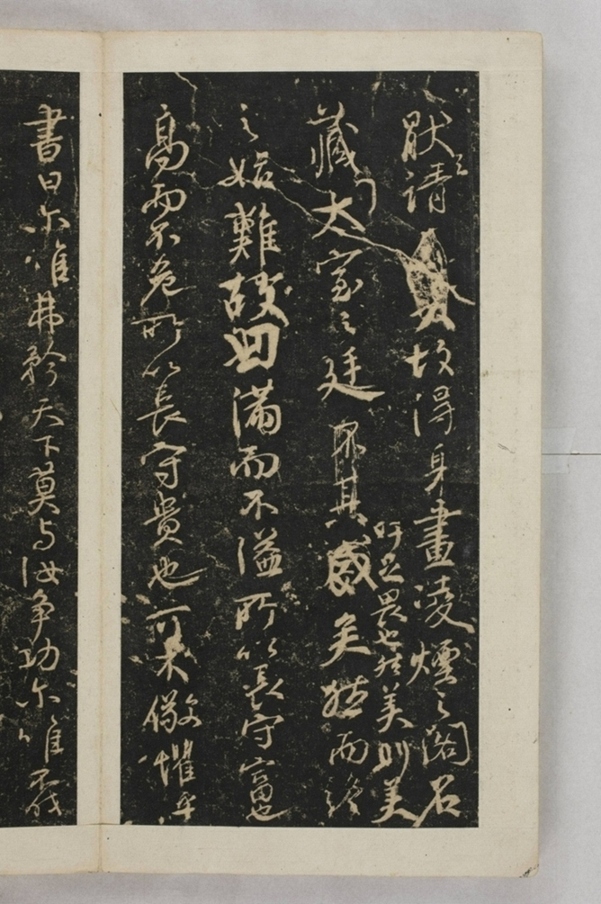 猒請故得身畫凌煙之閣名
藏太室之廷其威矣然而終
吁足畏也然美則美
之始難故曰滿而不溢所以長守富也
高而不危所以長守貴也可不儆懼乎
書曰尔唯弗矜天下莫与汝争功尔唯不伐